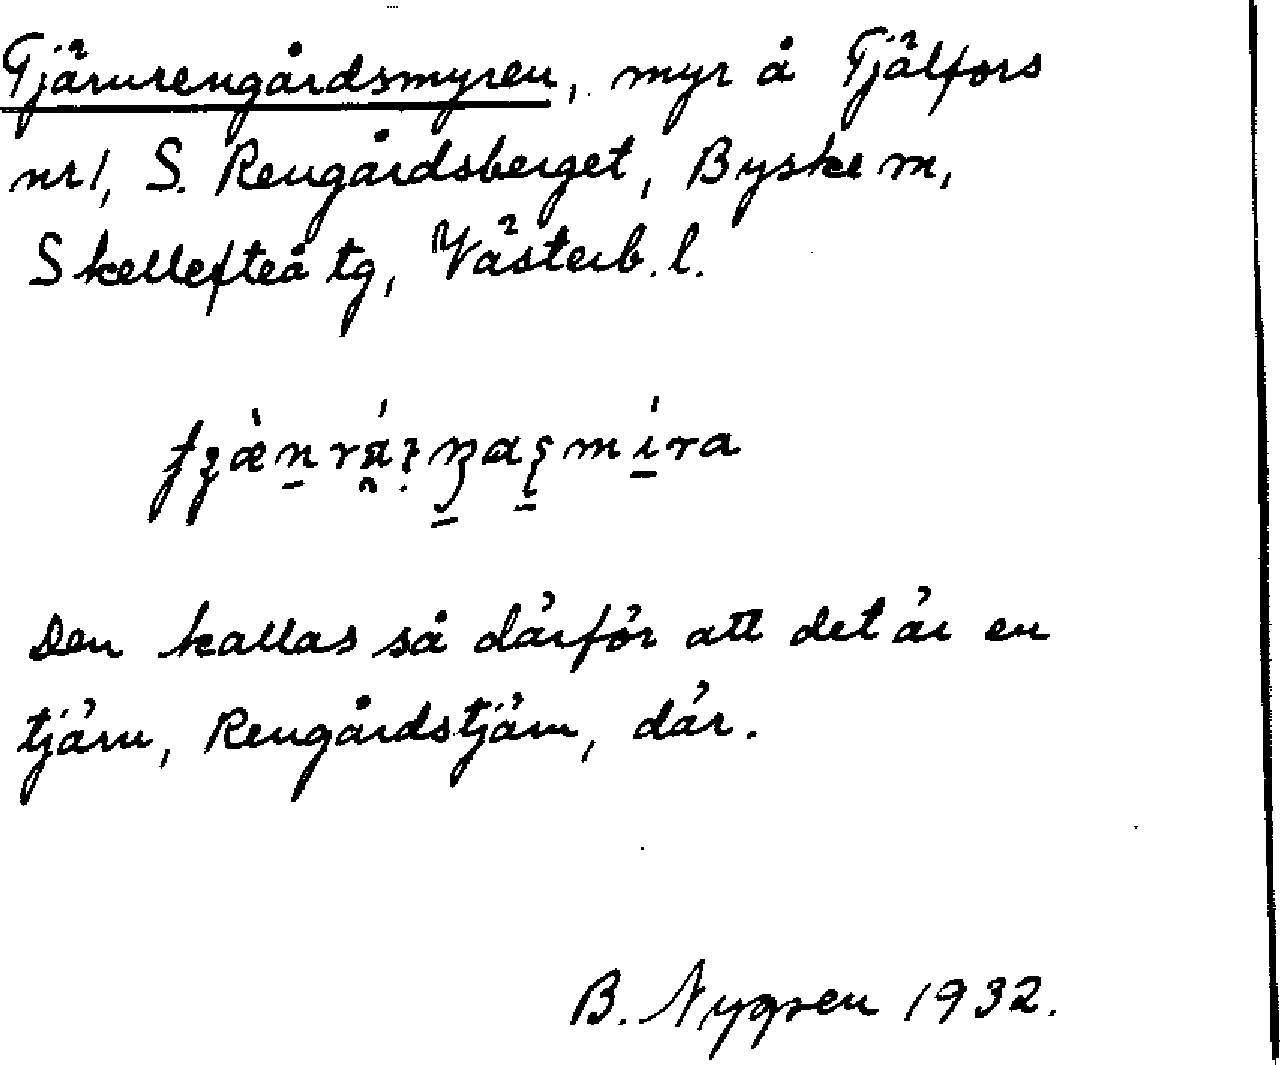 Tjärnrengårdsmyren, myr å Tjälfors
nr 1, S. Rengårdsberget, Byske m,
Skellefteå tg, Västerb. l.
Den kallas så därför att det är en
tjärn, Rengårdstjärn, där.
B. Nygren 1932.